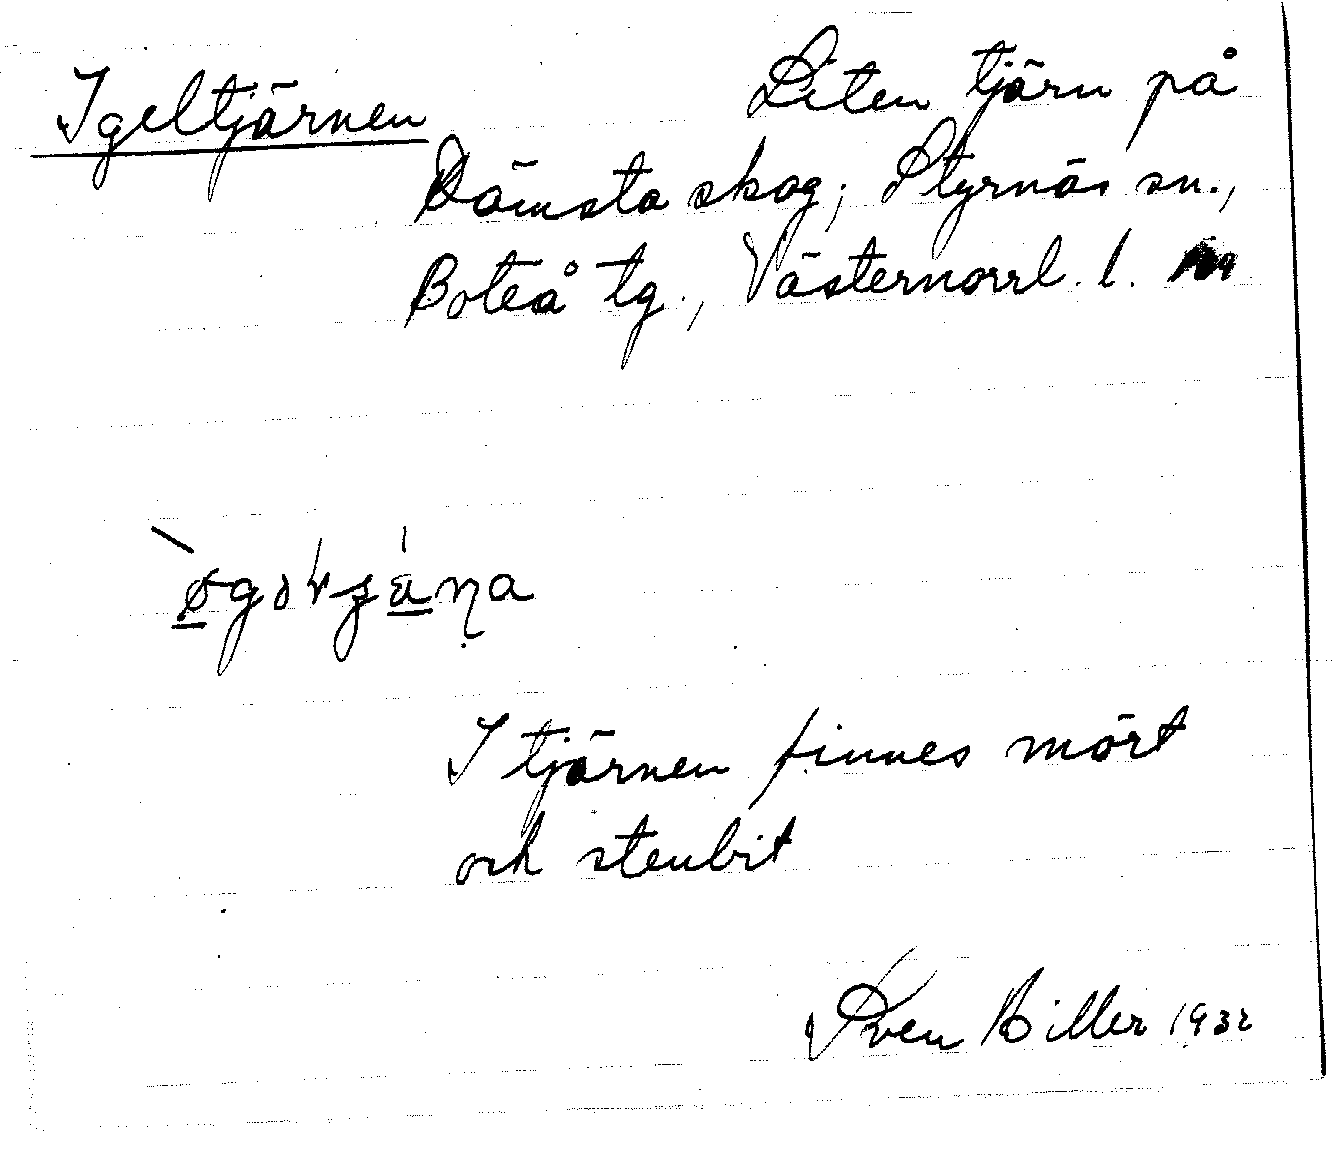 Igeltjärnen Liten tjärn på
Dämsta skog, Styrnäs sn.,
Boteå tg., Västernorrl. l.
I tjärnen finnes mört
och stenbit
Sven Hiller 1932